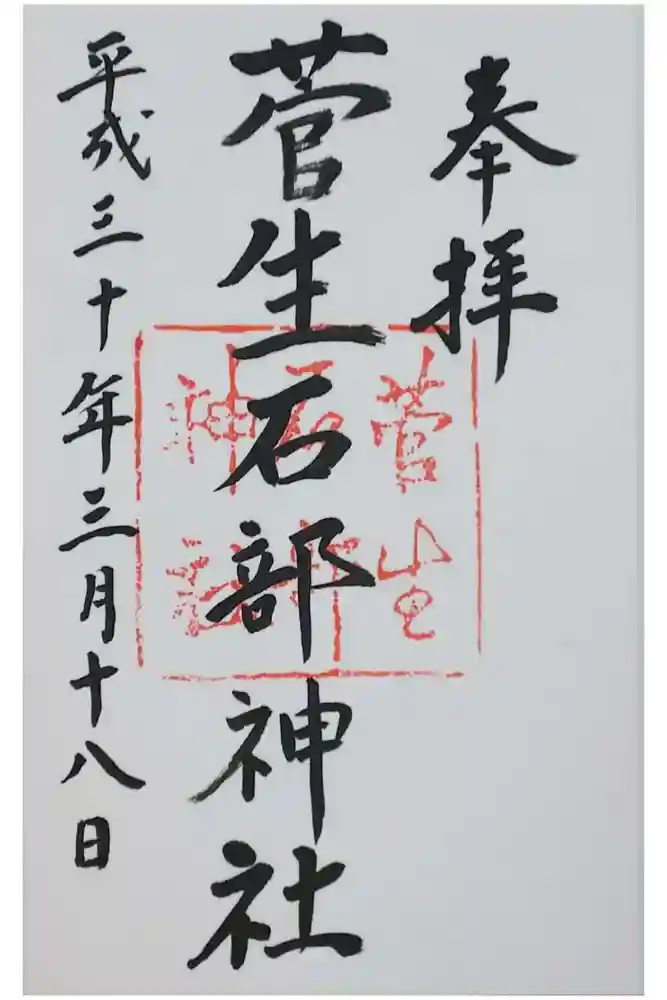 奉拝
菅生石部神社
菅生
石部
神社
平成三十年三月十八日